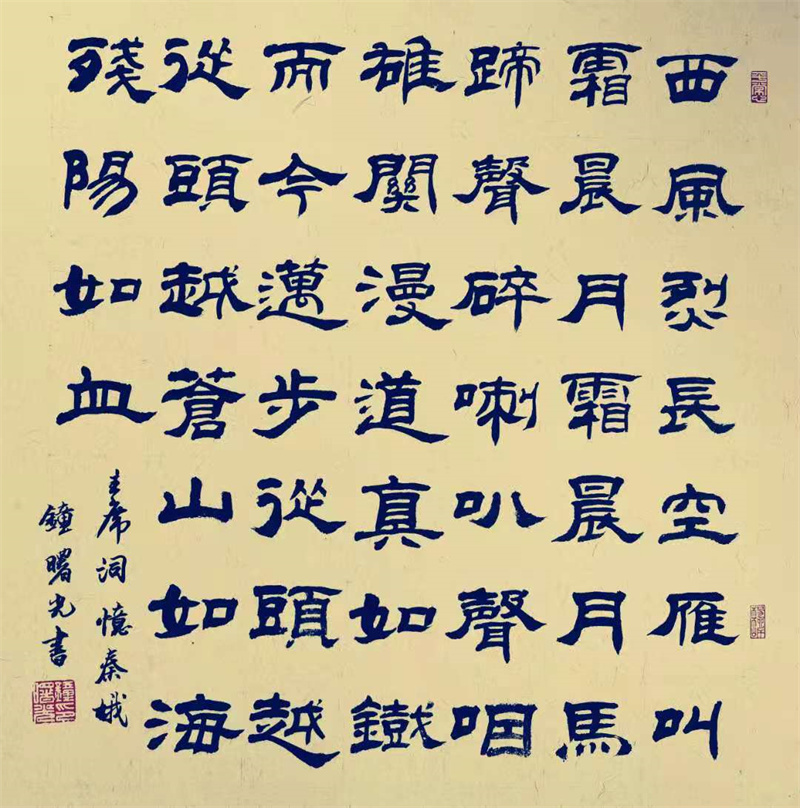 西風烈長空雁叫
霜晨月霜晨月馬
蹄聲碎喇叭聲咽
雄關漫道真如鐵
而今邁步從頭越
從頭越蒼山如海
殘陽如血
主席詞憶秦娥
鐘曙光書